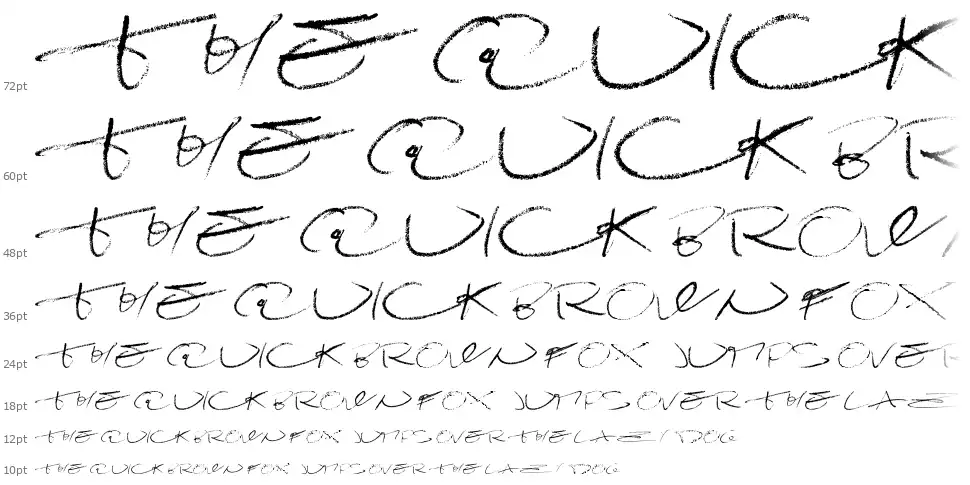 THE QUICK
72pt
THE QUICK BR
60pt
THE QUICK BROW
48pt
THE QUICK BROWN FOX
36pt
THE QUICK BROWN FOX JUMPS OVER
24pt
THE QUICK BROWN FOX JUMPS OVER THE LAZ
18pt
THE QUICK BROWN FOX JUMPS OVER THE LAZY DOG
12pt
THE QUICK BROWN FOX JUMPS OVER THE LAZY DOG
10pt